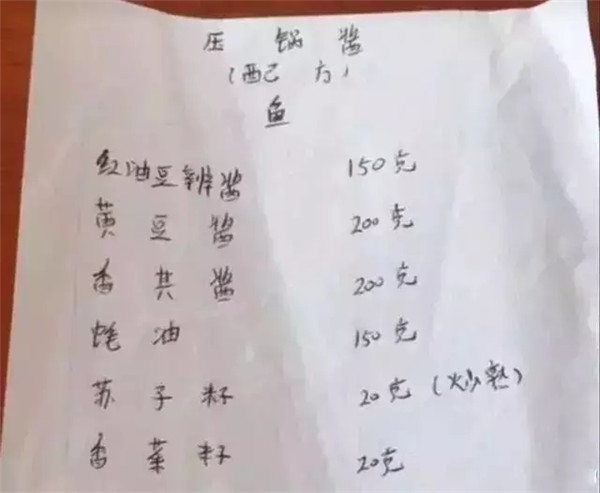 压 锅 酱
(配 方)
鱼
红油豆辨酱 150克
黄豆酱 200克
香其酱 200克
蚝油 150克
苏子籽 20克(炒熟)
香菜籽 20克